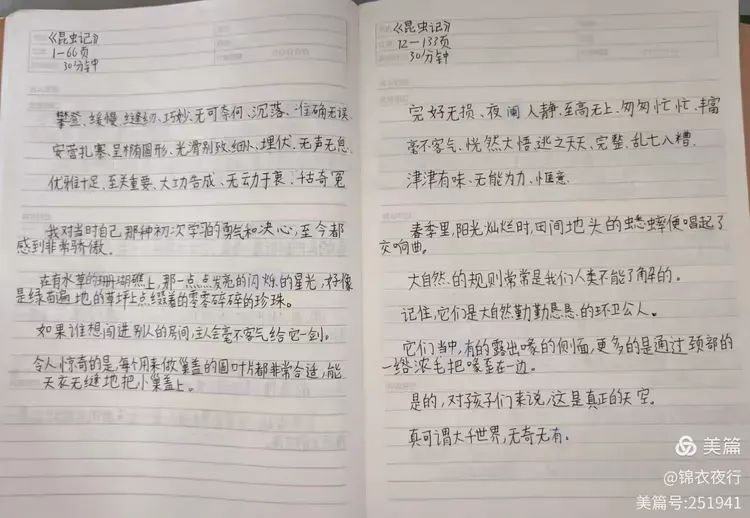 《昆虫记》
1-66页
30分钟
攀登、缓慢、缝纫、巧妙、无可奈何、沉落、准确无误
安营扎寨、呈椭圆形、光滑别致、细小、埋伏、无声无息
优雅十足、至关重要、大功告成、无动于衷、千古奇冤
我对当时自己那种初次学习的勇气和决心,至今都
感到非常骄傲。
在有水草的珊瑚礁上,那一点点发亮的闪烁的星光,好像
是绿茵遍地的草坪上点缀着的零零碎碎的珍珠。
如果谁想闯进别人的房间,主人会毫不客气给它一剑。
令人惊奇的是,每个用来做巢盖的圆叶片都非常合适,能
天衣无缝地把小巢盖上。
《昆虫记》
72-133页
30分钟
完好无损、夜阑人静、至高无上、匆匆忙忙、丰富
毫不客气、恍然大悟、逃之夭夭、完整、乱七八糟
津津有味、无能为力、惬意
春季里,阳光灿烂时,田间地头的蟋蟀便唱起了
交响曲。
大自然的规则常常是我们人类不能了解的。
记住,它们是大自然勤勤恳恳的环卫公人。
它们当中,有的露出喙的侧面,更多的是通过颈部的
一绺浓毛把喙歪在一边。
是的,对孩子们来说,这是真正的天空。
真可谓大千世界,无奇无有。
美篇
@锦衣夜行
美篇号:251941